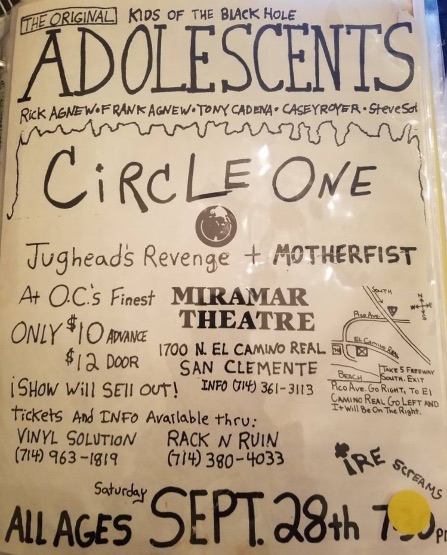 THE ORIGINAL KIDS OF THE BLACK HOLE
ADOLESCENTS
RICK AGNEW • FRANK AGNEW • TONY CADENA • CASEY ROYER • Steve Soto
CIRCLE ONE
Jughead's Revenge + MOTHERFIST
At O.C.'s Finest
MIRAMAR
THEATRE
ONLY $10 ADVANCE
$12 DOOR
1700 N. EL CAMINO REAL
SAN CLEMENTE
INFO (714) 361-3113
¡SHOW WiLL SELL OUT!
SOUTH
PICO AVE.
EL CAMINO REAL
BEACH
TAKE 5 FREEWAY
SOUTH. EXIT
PICO AVE. GO RIGHT, TO EL
CAMINO REAL GO LEFT AND
IT WILL BE ON THE RIGHT.
Tickets AND INFO Available thru:
VINYL SOLUTION
(714) 963-1819
RACK N RUIN
(714) 380-4033
IRE SCREAMS
Saturday
ALL AGES SEPT. 28th